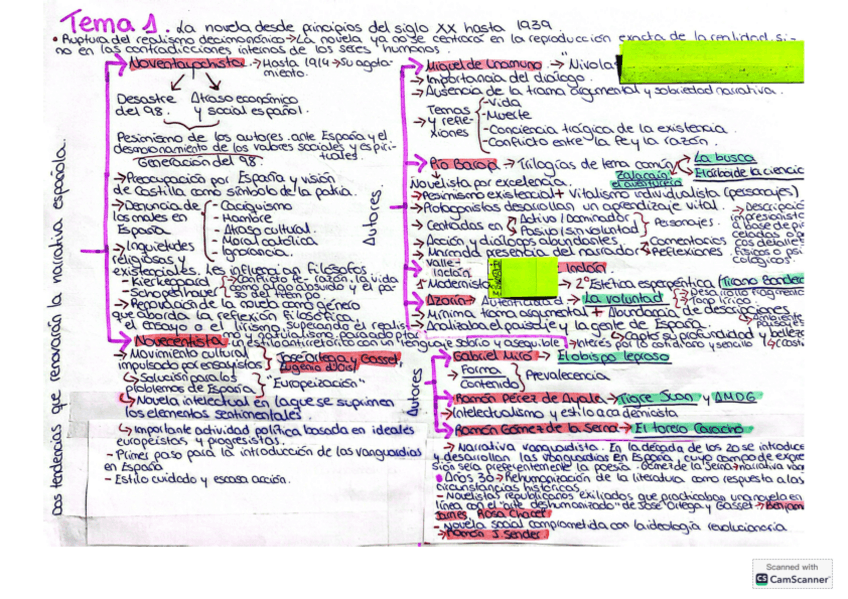 Tema 1. La novela desde principios del siglo XX hasta 1939.
• Ruptura del realismo decimonónico → La novela ya no se centrará en la reproducción exacta de la realidad, si-
no en las contradicciones internas de los seres humanos.
Dos tendencias que renovarán la narrativa española.
Noventayochista → Hasta 1914 → Su agota-
miento.
Desastre del 98.
Atraso económico y social español.
Pesimismo de los autores ante España y el
desmoronamiento de los valores sociales y espiri-
tuales.
Generación del 98.
→ Preocupación por España y visión
de Castilla como símbolo de la patria.
→ Denuncia de los males en España
- Caciquismo
- Hambre
- Atraso cultural.
- Moral católica
- Ignorancia.
→ Inquietudes
religiosas y
existenciales. Les influencian filósofos
- Kierkegaard
- Schopenhauer
Conflicto fe-razón, la vida
como algo absurdo y el pa-
so del tiempo.
→ Renovación de la novela como género
que aborda la reflexión filosófica,
el ensayo o el lirismo, superando el realis-
mo y naturalismo, para adoptar
un estilo antirretórico con un lenguaje sobrio y asequible
Novecentista
→ Movimiento cultural
impulsado por ensayistas
José Ortega y Gasset,
Eugenio d'Ors
↳ Solución para los
problemas de España
"Europeización"
↳ Novela intelectual en la que se suprimen
los elementos sentimentales.
↳ Importante actividad política basada en ideales
europeístas y progresistas.
- Primer paso para la introducción de las vanguardias
en España.
- Estilo cuidado y escasa acción.
Autores.
Miguel de Unamuno → "Nivola
→ Importancia del diálogo.
→ Ausencia de la trama argumental y sobriedad narrativa.
Temas
→ y refle-
xiones
- Vida
- Muerte
- Conciencia trágica de la existencia.
- Conflicto entre la fe y la razón.
Pío Baroja → Trilogías de tema común
La busca
Zalacaín
el aventurero
El árbol de la ciencia
Novelista por excelencia.
→ Pesimismo existencial + Vitalismo individualista (personajes)
→ Protagonistas desarrollan un aprendizaje vital.
→ Centradas en
Activo/Dominador
Pasivo (sin voluntad)
Personajes.
→ Acción y diálogos abundantes
→ Marcada presencia del narrador
Comentarios
Reflexiones.
→ Descripció
impresionista
a base de pin
celadas o po
cos detalles
físicos o psi
cológicos.
Valle-
Inclán
Inclán.
1º Modernista
→ 2º Estética esperpéntica (Tirano Bander
Azorín →
→ La voluntad
Desarrollo fragmenta
Tono lírico.
→ Mínima trama argumental + Abundancia de descripciones
Ambiente
Paisajes
→ Analizaba el paisaje y la gente de España.
↳ Captó su profundidad y bellez
↳ Interés por lo cotidiano y sencillo
Autores
Gabriel Miró → El obispo leproso
→ Forma
Contenido
Prevalencia
Ramón Pérez de Ayala → Tigre Juan y AMDG
→ Intelectualismo y estilo academista
Ramón Gómez de la Serna → El torero Caracho
→ Narrativa vanguardista. En la década de los 20 se introduce
y desarrollan las vanguardias en España, cuyo campo de expre
sión será preferentemente la poesía. Gómez de la Serna → narrativa van
• Años 30 → Rehumanización de la literatura como respuesta a las
circunstancias históricas
- Novelistas republicanos exiliados que practicaban una novela en
línea con el "arte deshumanizado" de José Ortega y Gasset → Benjam
Jarnés, Rosa Chacel
- Novela social comprometida con la ideología revolucionaria
→ Ramón J. Sender.
Scanned with
CS CamScanner